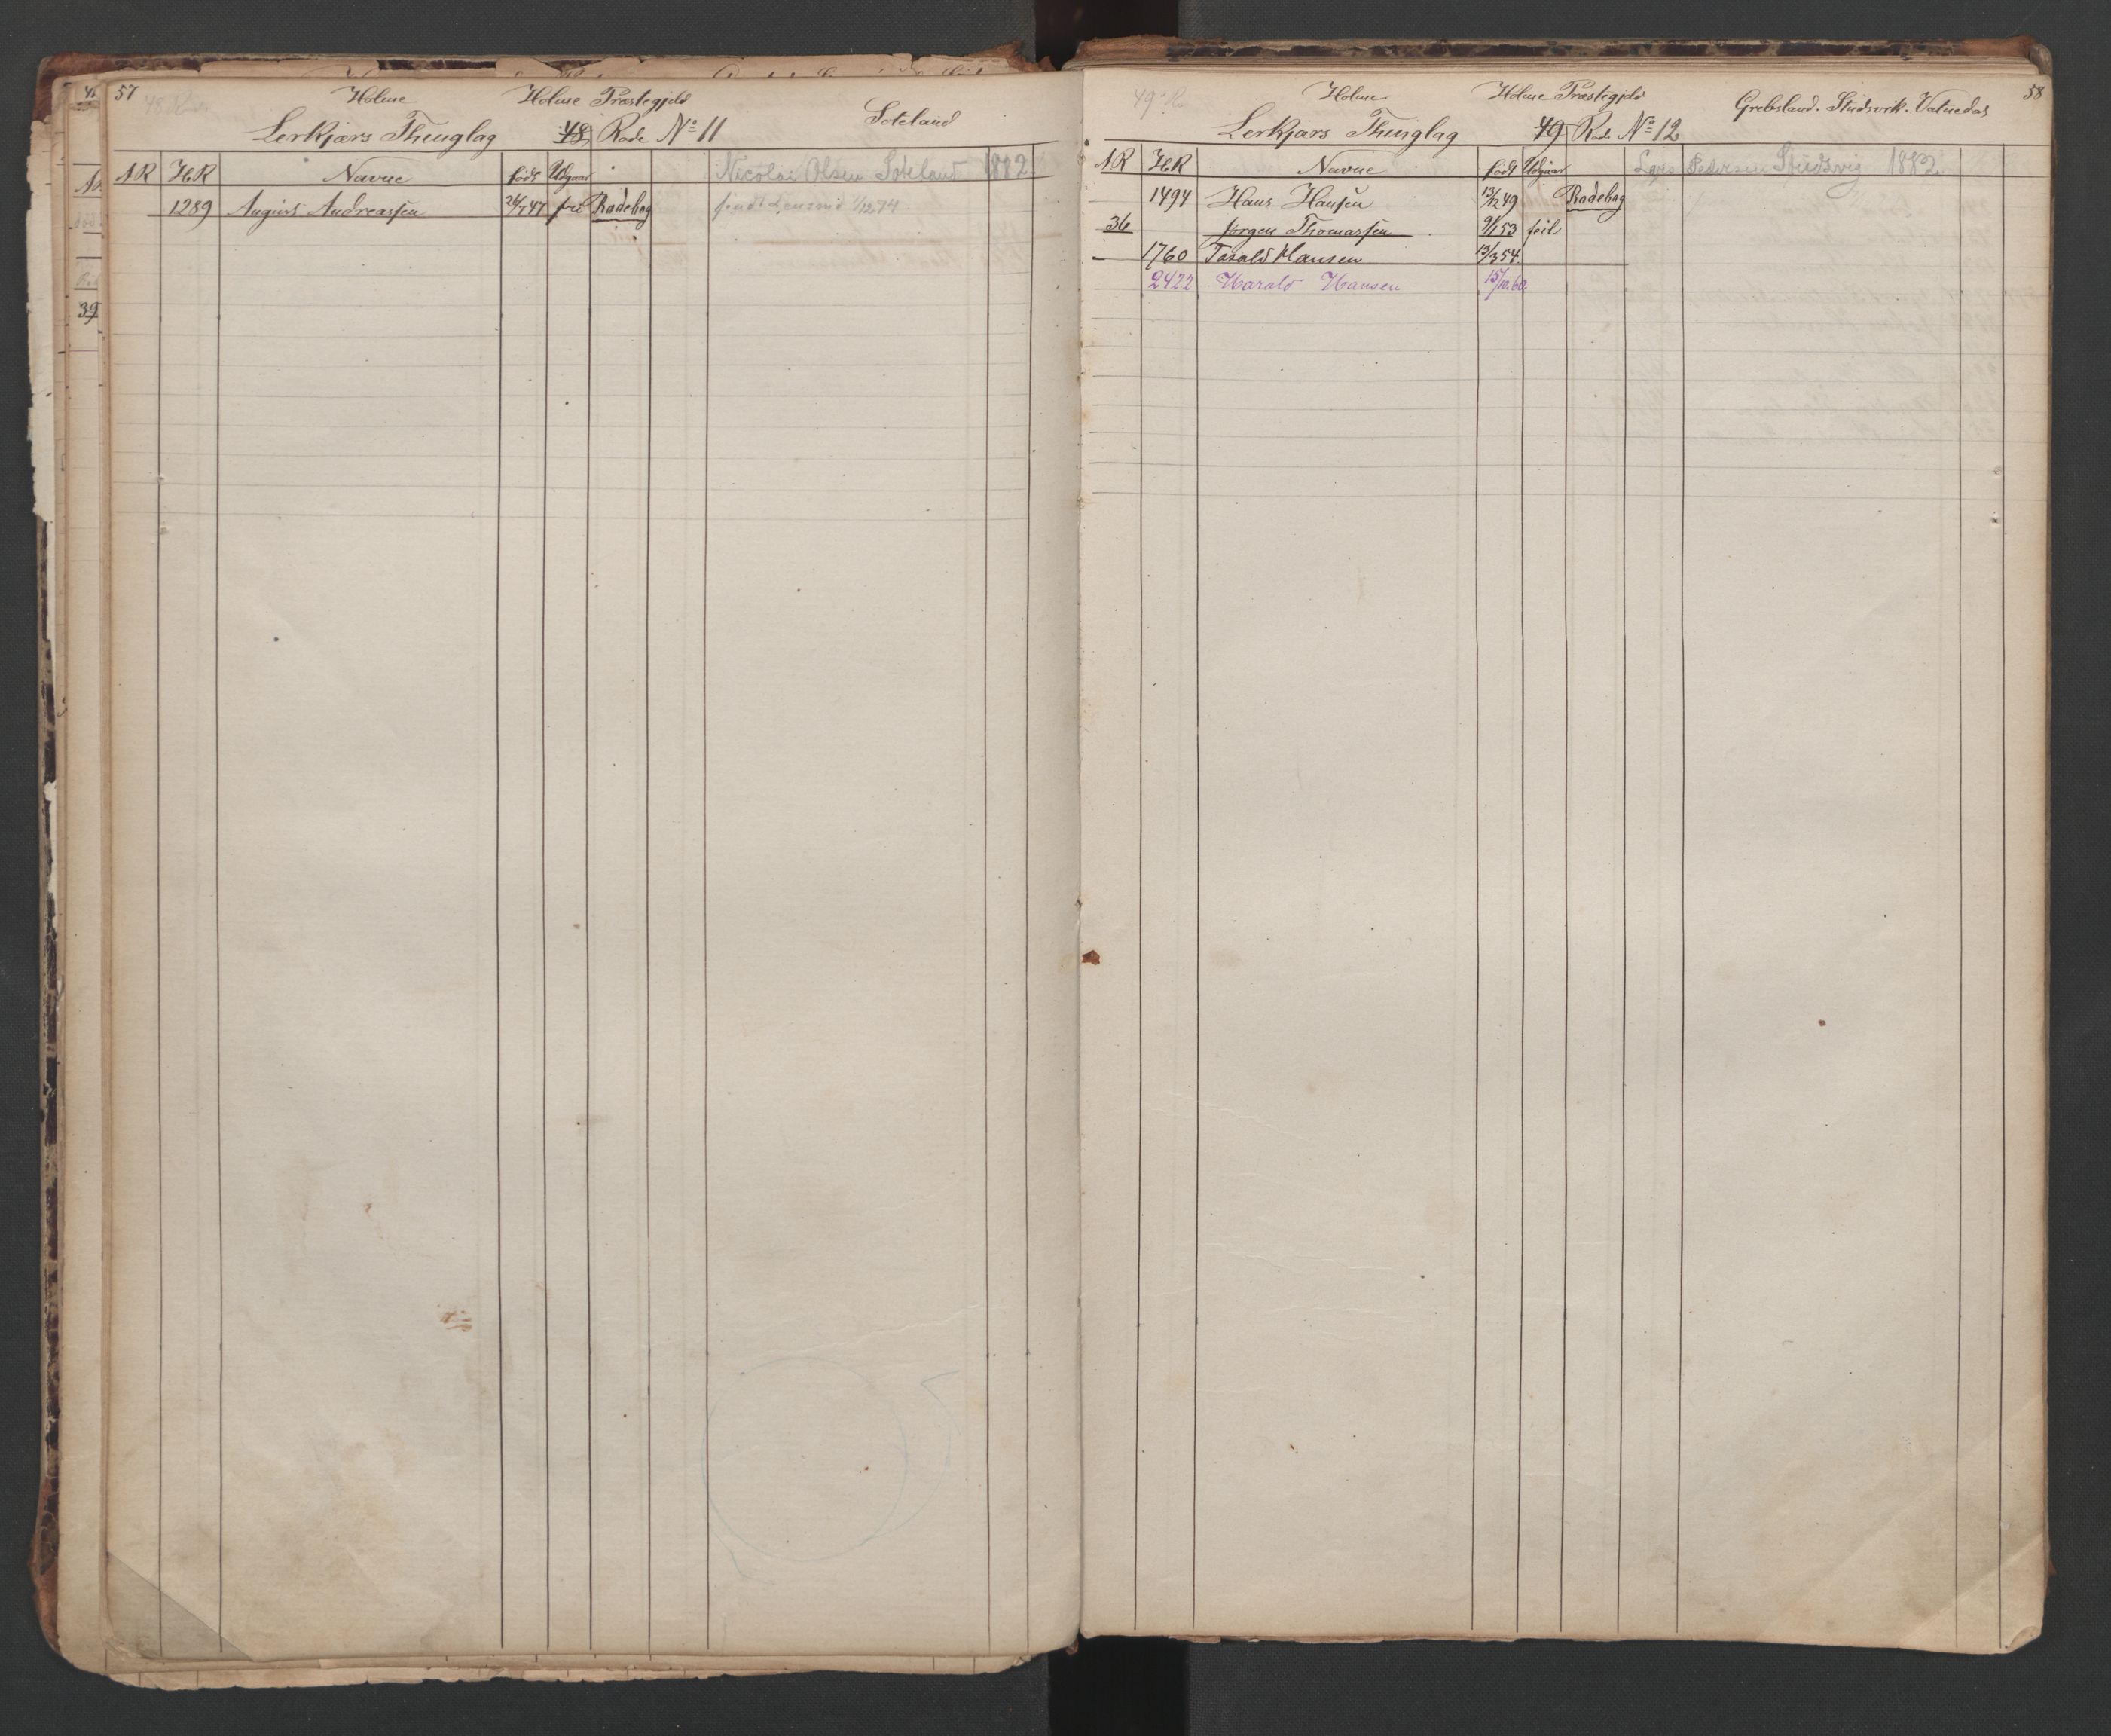 57 Holme Holme Præstegjeld Soteland
Lerkjærs Thinglag 48 Rode No 11
AR HR Navne født Udgaar Nicolai Olsen Soteland 1882
1289 August Andreassen 26/7 47 fri Rodebog
39
49 Holme Holme Præstegjeld Grebsland. Studsvik. Vatnedal 58
Lerkjærs Thinglag 49 Rode No 12
AR HR Navne født Udgaar Lars Pedersen Studsvig 1882
1494 Hans Hansen 13/12 49 Rodebog
36 Jørgen Thomassen 9/1 53 feil
1760 Tarald Hansen 13/3 54
2422 Harald Hansen 15/10. 60.